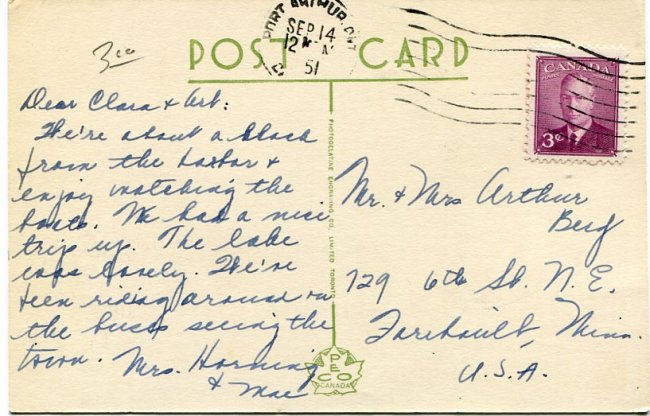 3.00
PORT ARTHUR. ONT
SEP 14
12
51
POST CARD
CANADA
POSTES POSTAGE
3¢
Dear Clara & Art:
We're about a block
from the harbor &
enjoy watching the
boats. We had a nice
trip up. The lake
was lovely. We've
been riding around on
the buses seeing the
town. Mrs. Horning
& Mae
PHOTOGELATINE ENGRAVING CO. LIMITED TORONTO
PECO
CANADA
Mr. & Mrs Arthur
Berg
729 6th St. N. E.
Faribault, Minn.
U.S.A.